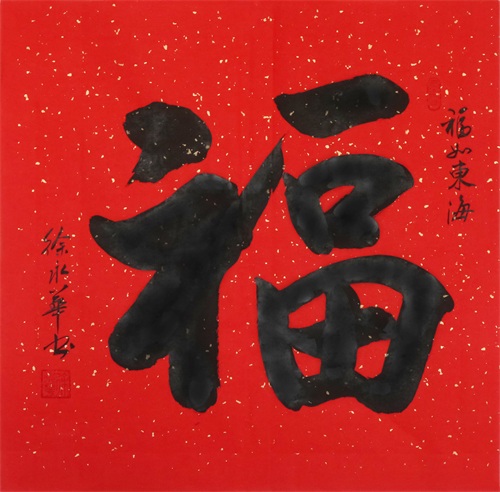 福如東海
福
徐永華书